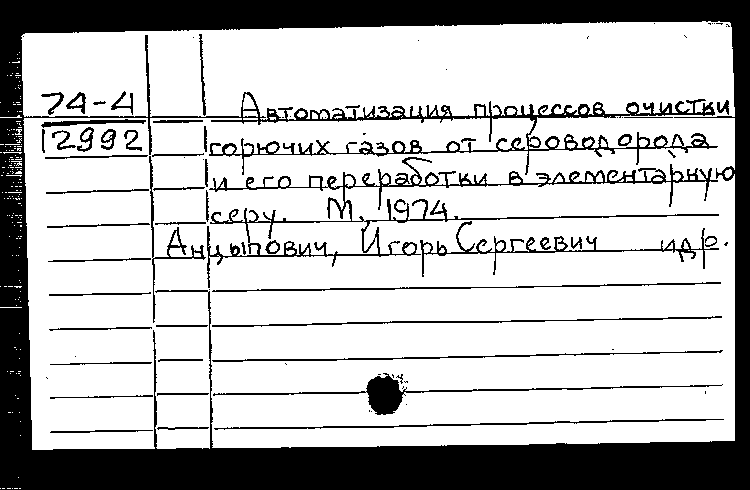 74-4
2992
Автоматизация процессов очистки
горючих газов от сероводорода
и его переработки в элементарную
серу. М., 1974.
Анцыпович, Игорь Сергеевич и др.